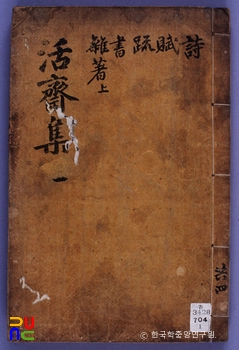 詩
賦
疏
書
雜著上
活齋集 一
共四
704
1
© 한국학중앙연구원